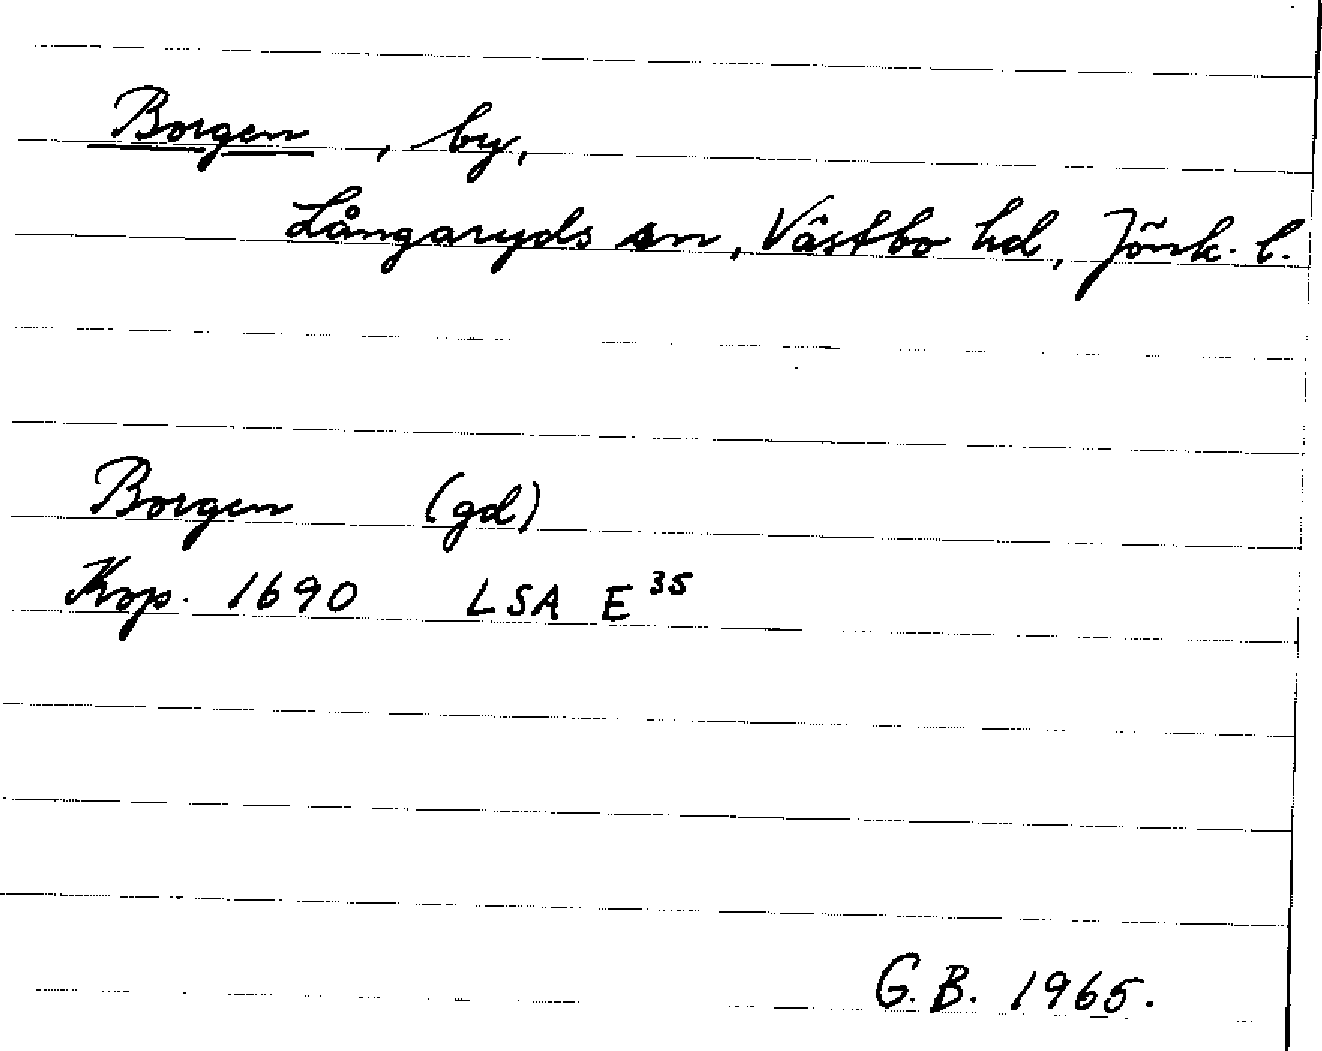 Borgen, by,
Långaryds sn, Västbo hd, Jönk. l.
Borgen (gd)
Kop. 1690 LSA E 35
G.B. 1965.